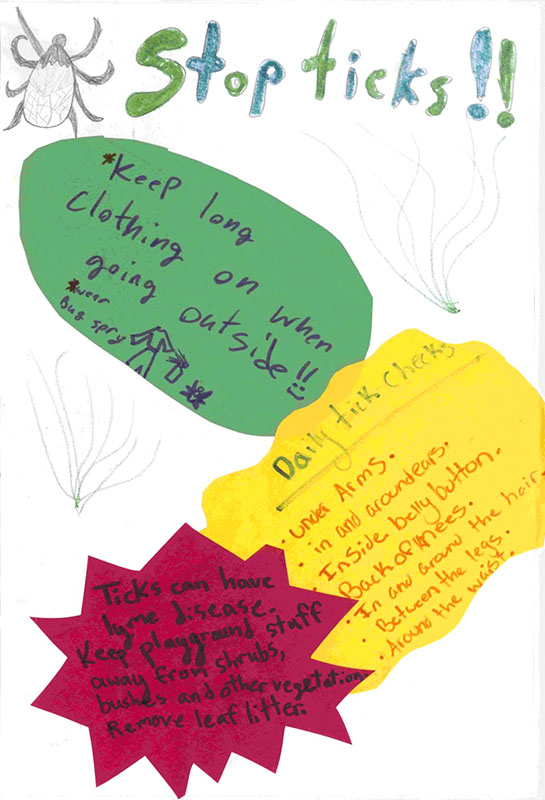 Stop ticks!!
*Keep long
Clothing on when
going outside!!
*wear
Bug spry
Daily tick checks
• under Arms.
• in and around ears.
• Inside belly button.
• Back of knees.
• In and around the hair.
• Between the legs.
• Around the waist.
Ticks can have
lyme disease.
Keep playground stuff
away from shrubs,
bushes and other vegetation.
Remove leaf litter.